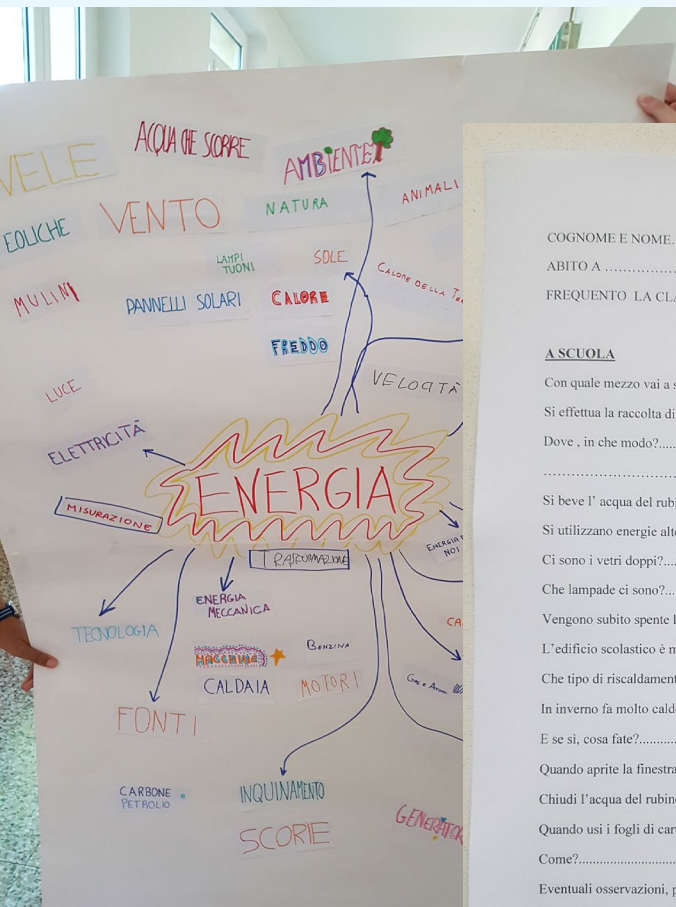 ACQUA CHE SCORRE
VELE
AMBIENTE
ANIMALI
NATURA
VENTO
EOLICHE
LAMPI
TUONI
SOLE
CALORE DELLA
MULINI
PANNELLI SOLARI
CALORE
FREDDO
VELOCITÀ
LUCE
ELETTRICITÀ
ENERGIA
MISURAZIONE
TRASFORMAZIONE
ENERGIA
NOI
ENERGIA
MECCANICA
TECNOLOGIA
MACCHINA
BENZINA
CALDAIA
MOTORI
FONTI
CARBONE
PETROLIO
INQUINAMENTO
SCORIE
GENERATOR
COGNOME E NOME.
ABITO A ..................
FREQUENTO LA CLA
A SCUOLA
Con quale mezzo vai a s
Si effettua la raccolta di
Dove , in che modo?.....
..........................
Si beve l' acqua del rubi
Si utilizzano energie alte
Ci sono i vetri doppi?....
Che lampade ci sono?...
Vengono subito spente l
L'edificio scolastico è m
Che tipo di riscaldament
In inverno fa molto cald
E se sì, cosa fate?..........
Quando aprite la finestra
Chiudi l'acqua del rubine
Quando usi i fogli di car
Come?..........................
Eventuali osservazioni, p